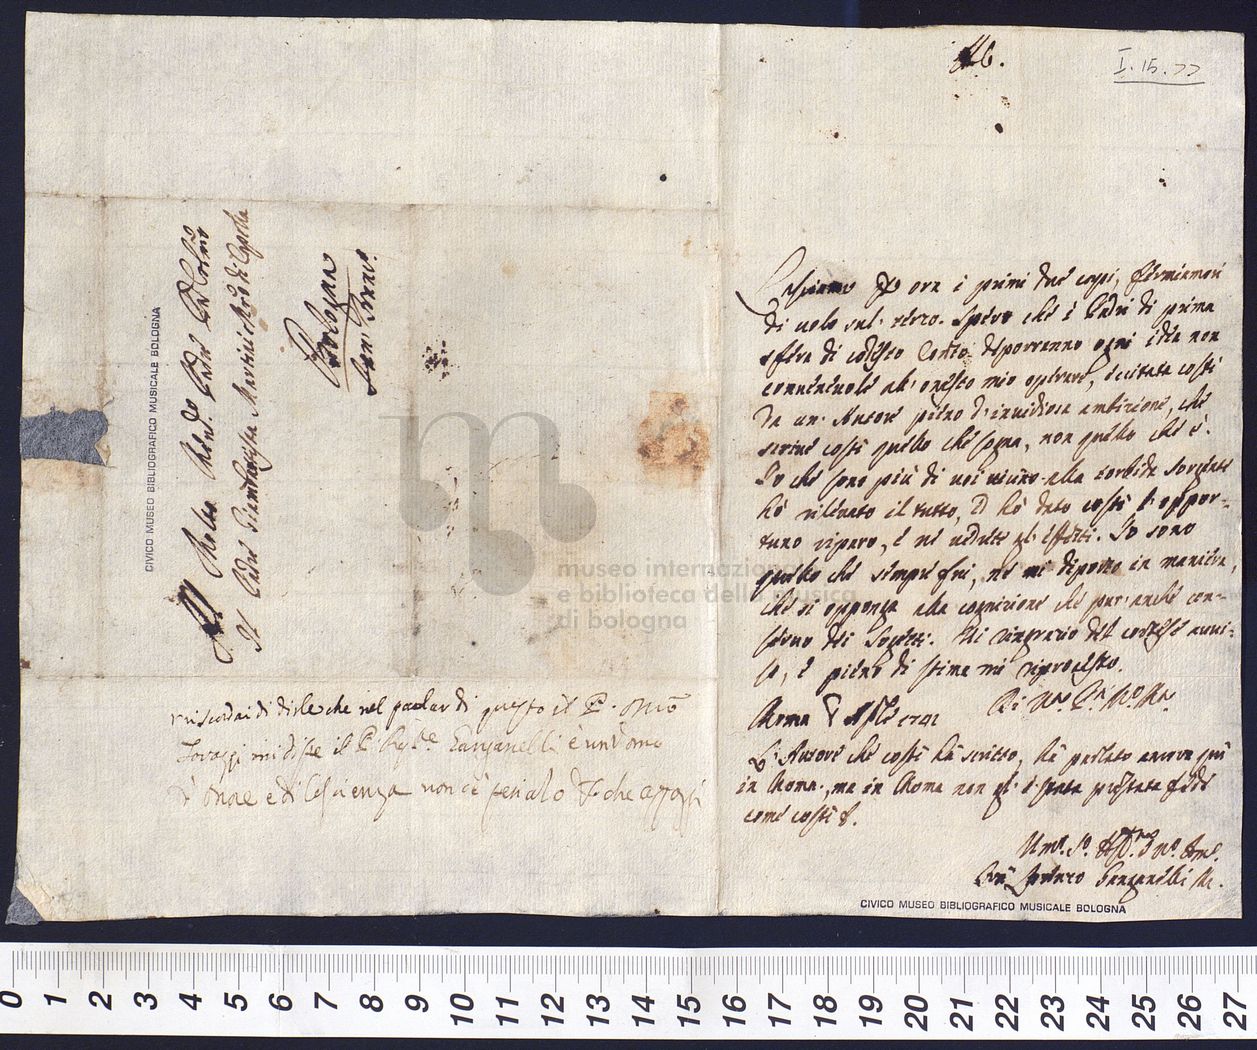 46.
I.15.77
Lasciamo per ora i primi due capi, fermiamoci
di volo sul terzo. Spero che i Padri di prima
sfera di codesto deporranno ogni idea non
convenevole al onesto mio operare, eccitata costì
da un Autore pieno d'invidiosa ambizione, che
scrive costì quello che sogna, non quello che è.
Io che sono più di voi vicino alla torbida sorgente
hò rilevato il tutto, ed hò dato costì l'oppor-
tuno riparo, e ne vedrete gl'effetti. Io sono
quello che sempre fui, ne mi diporto in maniera,
che si opponga alla cognizione che pur anche con-
servo dei Soggetti. Vi ringrazio del cortese avvi-
so, e pieno di stima mi riprotesto.
Di V.
Roma 1741
L'Autore che costì hà scritto, hà parlato ancora quì
in Roma, ma in Roma non gl'è stata prestata fede
come costì
Lorenzo Ganganelli
Al Molto Rev.do Padre
Il Padre Giambattista Martini Mro di Capella
Bologna
San Franc.
mi scordai di dirle che nel parlar di questo il P.
mi disse il P. Ganganelli è un Uomo
d'onore e di Coscienza non c'è pericolo che
CIVICO MUSEO BIBLIOGRAFICO MUSICALE BOLOGNA
museo internazionale
e biblioteca della musica
di bologna
CIVICO MUSEO BIBLIOGRAFICO MUSICALE BOLOGNA
0 1 2 3 4 5 6 7 8 9 10 11 12 13 14 15 16 17 18 19 20 21 22 23 24 25 26 27